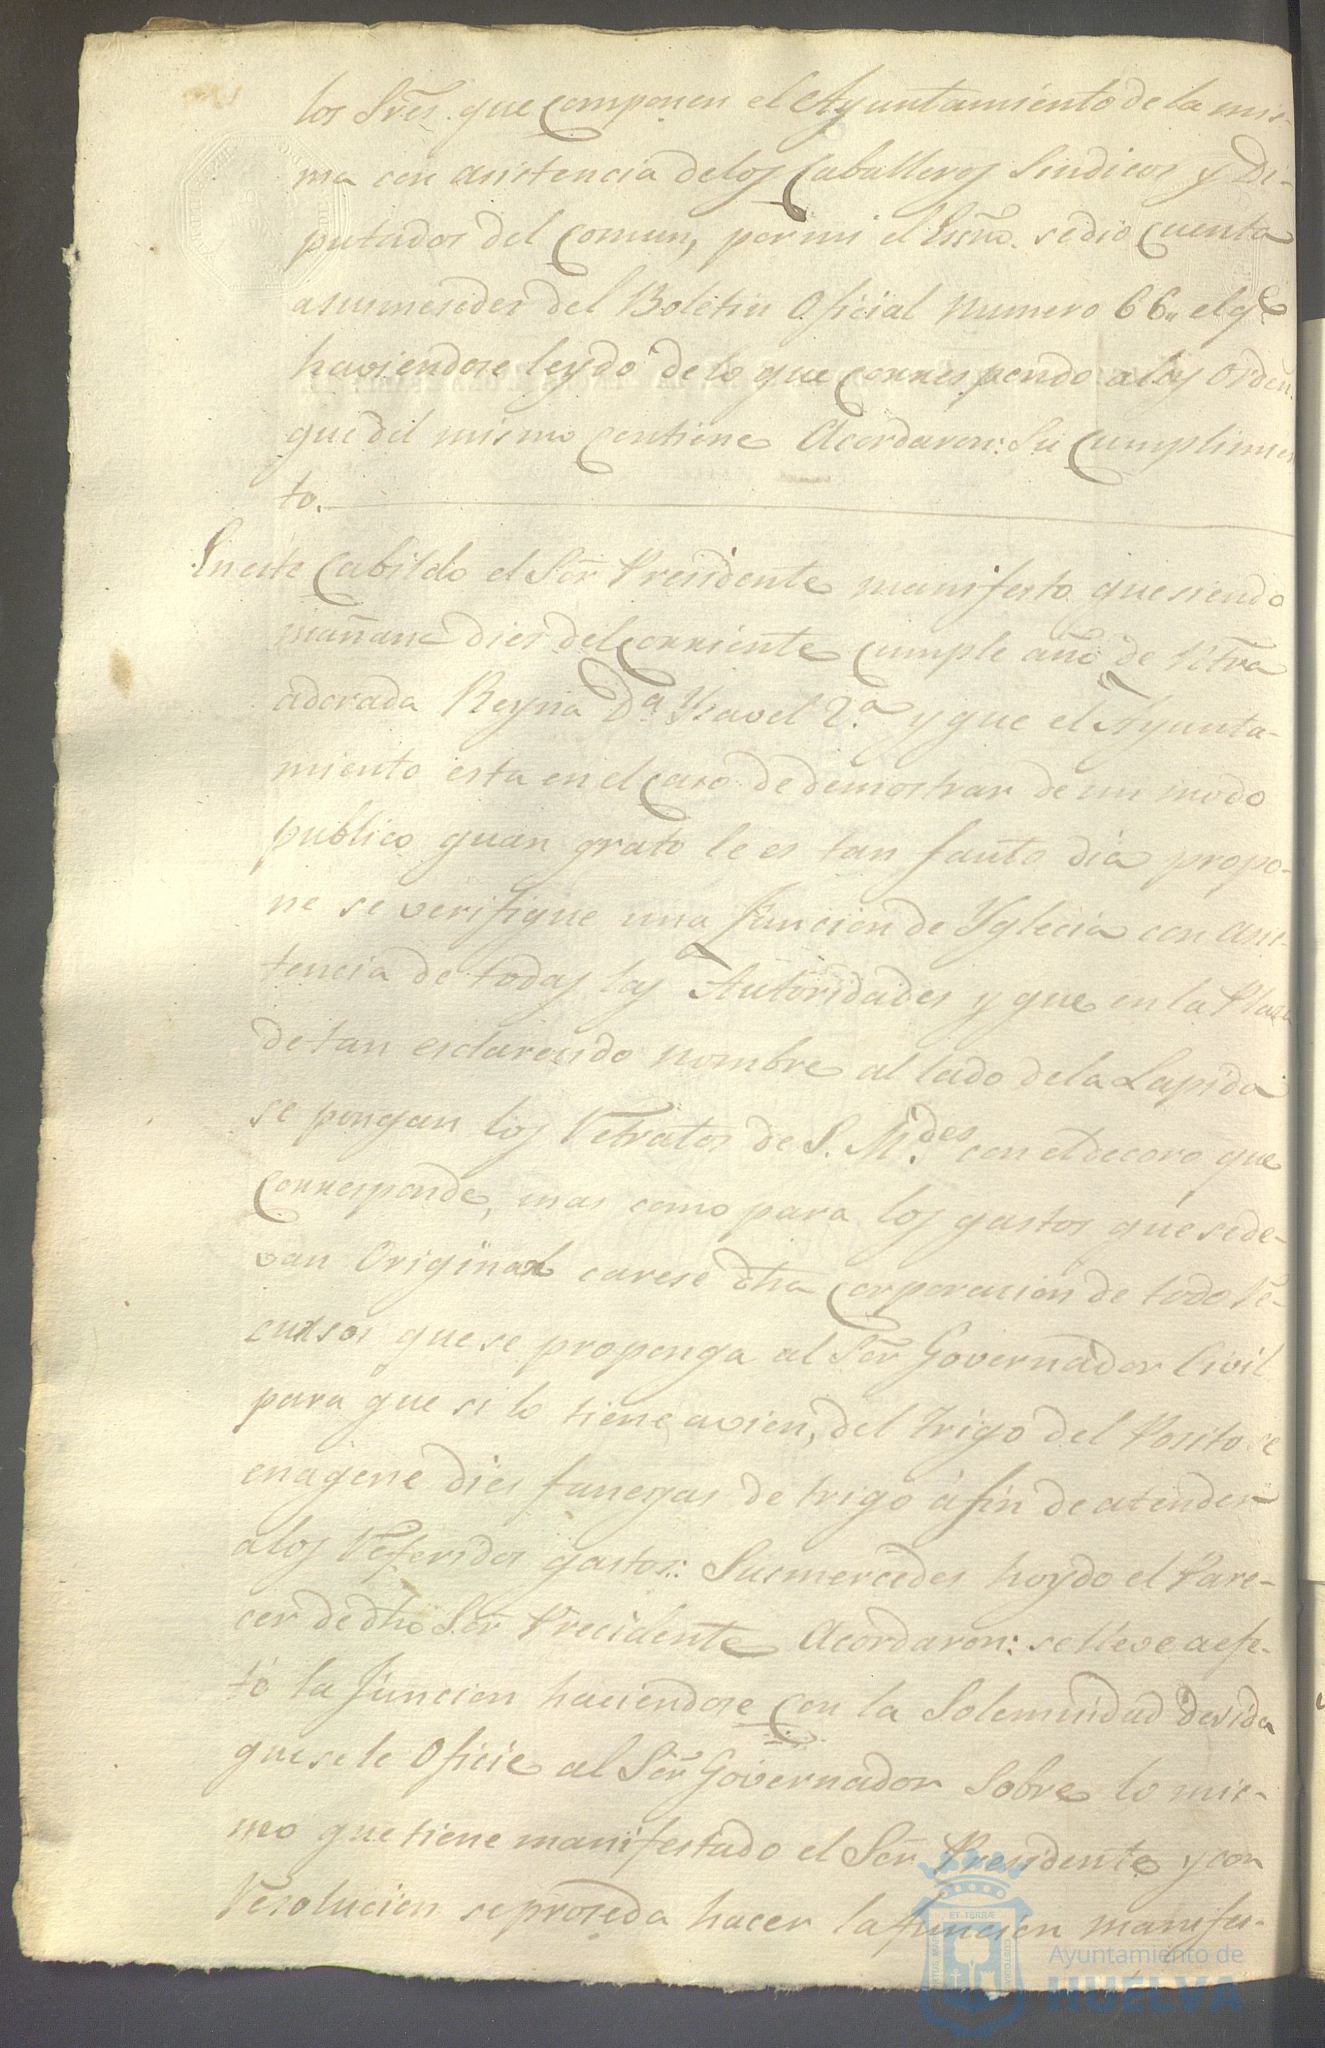 los Sres. que componen el Ayuntamiento de la mis-
ma con asistencia delos Caballeros Sindicos y Di-
putados del Comun, por mi el Essno. sedio Cuenta
asusmersedes del Boletin Oficial Numero 66,, el qe
haviendose leydo de lo que corresponde alas orden
que del mismo contiene Acordaron: Su Cumplimien
to.
En este Cabildo el Señr Presidente manifesto que siendo
mañana dies del corriente cumple año de Ntra
adorada Reyna Da. Ysavel 2.a y que el Ayunta-
miento esta en el Caso de demostrar de un modo
publico quan grato le es tan fausto dia propo-
ne se verifique una funcion de Yglecia con asis-
tencia de todas las Autoridades y que en la Plaza
de tan esclarecido nombre al lado dela Lapida
se pongan los Retratos de S. M.des con el decoro que
Corresponde, mas como para los gastos que sede-
van Originar carese dha Corporacion de todo Re-
cursos que se proponga al Señr Governador Civil
para que si lo tiene avien, del trigo del Posito se
enagene dies fanegas de trigo á fin de atender
alos Referidos gastos: Susmercedes hoydo el Pare-
cer de dho Señr Precidente Acordaron: se lleve aefe-
to la funcion haciendose con la Solemnidad devida
que se le Oficie al Señr Governador Sobre lo mis-
mo que tiene manifestado el Señr Presidente y con
Resolucion se proseda hacer la funcion manifes-
Ayuntamiento de
HUELVA